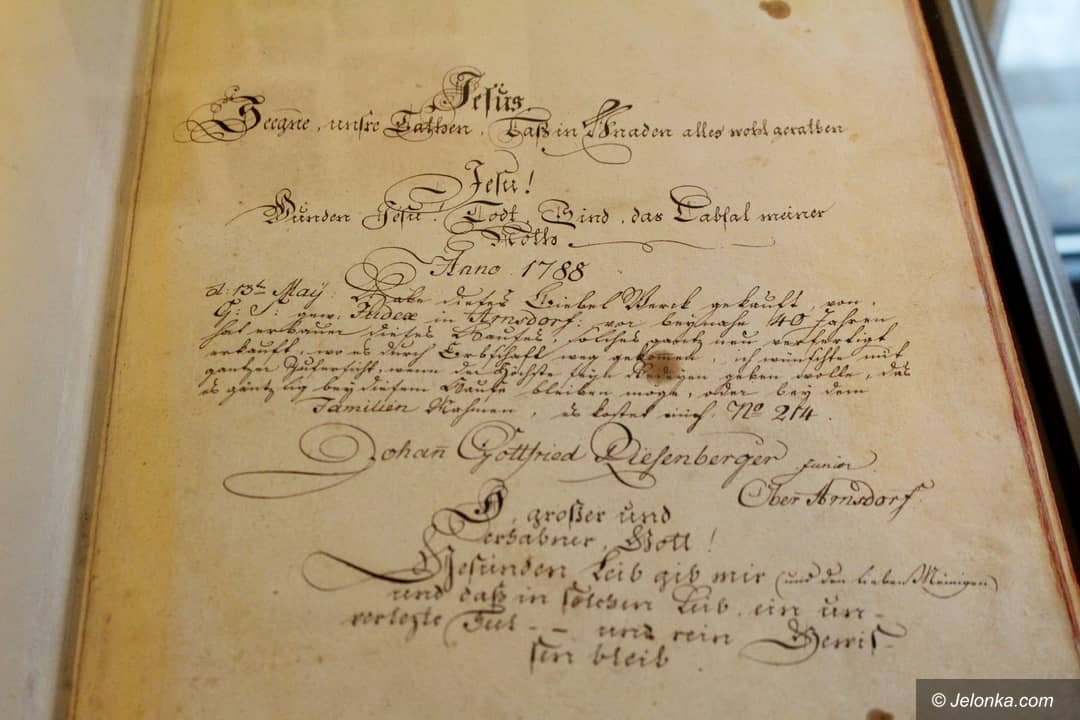 Jesus
Seegne, unsre Tathen, Daß in Gnaden alles wohl gerathen
Jesu!
Wunden Jesu! Todt, Sind, das Labsal meiner
Noth.
Anno 1788
d: 13th Maÿ: Habe dieses Biebel Werck gekauft, von,
G: S: gew. Judex in Arnsdorf: vor beynahe 40 Jahren
hat erbauer dieses Hauses, solches gantz neu verfertigt
erkauft, wo es durch Erbschaft weg gekommen, ich wünschte mit
gantzer Zufersicht, wenn der Höchste seyn Gedeyen geben wolle, das
es gäntzlig bey diesem Hause bleiben möge, oder bey dem
Familien Nahmen, es kostet mich. No 214.
Johann Gottfried Riesenberger junior
Ober Arnsdorf.
O, großer und
Erhabner, Gott!
Gesunden Leib gib mir (und den lieben Meinigen)
und daß in solchen Leib, ein un-
verlezte Seel -- und rein Gewis-
sen bleib
© Jelonka.com